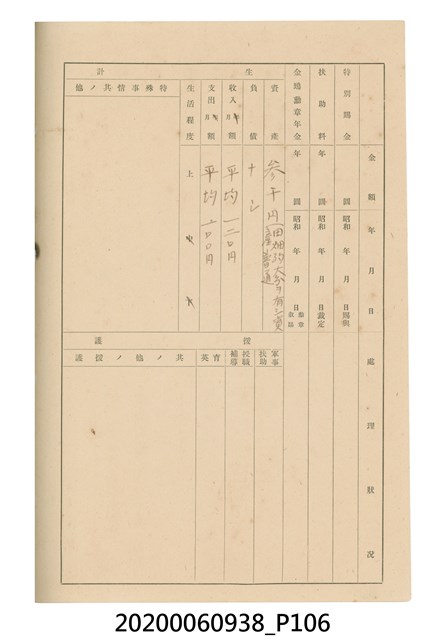 金額 年月日 處理狀況
特別賜金 圓 昭和 年 月 日 賜與
扶助料 年 圓 昭和 年 月 日 裁定
金鵄勳章年金 年 圓 昭和 年 月 日
生計
資產 參千円
負債 ナシ
收入 月 年 額 平均 一二〇円
支出 月 年 額 平均 一〇〇円
生活程度 上 中 下
特殊事情其ノ他
援護
軍事扶助
授職補導
育英
其ノ他ノ援護
20200060938_P106